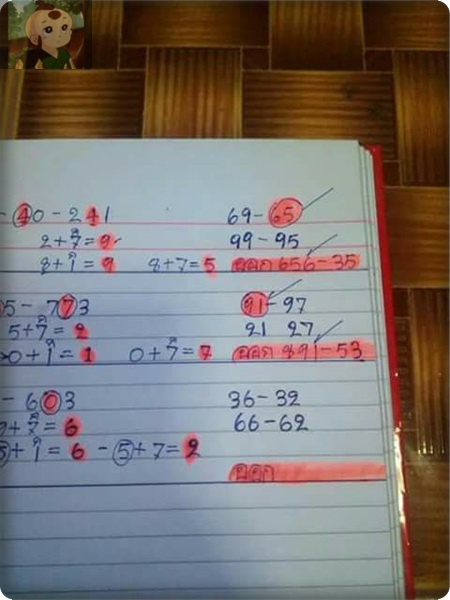 - 40 - 241 69-65
2+7=9 99-95
8+1=9 8+7=5 ออก 656-35
05 - 773 91-97
5+7=2 21 27
0+1=1 0+7=7 ออก 891-53
- 603 36-32
9+7=6 66-62
5+1=6 - 5+7=2
ออก